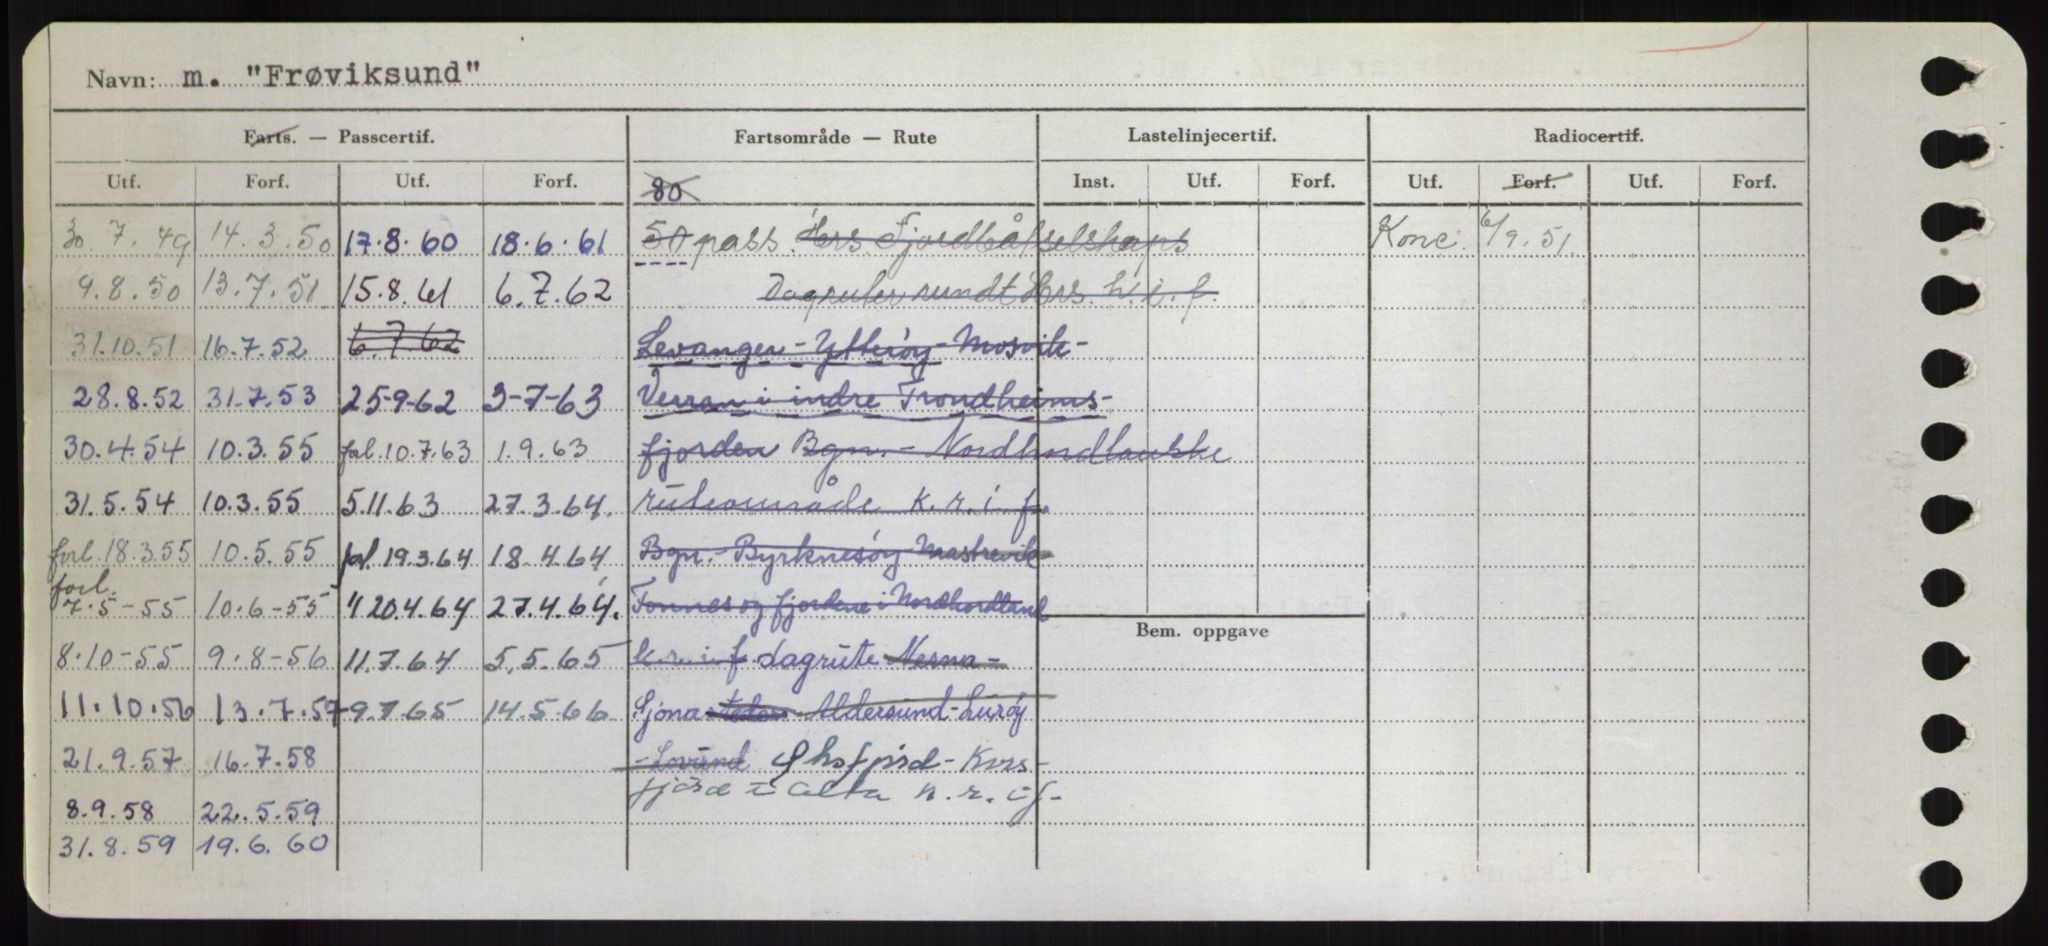 Navn: m. "Frøviksund"
Farts. — Passcertif. Fartsområde — Rute Lastelinjecertif. Radiocertif.
Utf. Forf. Utf. Forf. 80 Inst. Utf. Forf. Utf. Forf. Utf. Forf.
30.7.49 14.3.50 17.8.60 18.6.61 50 pass. Hrs Fjordbåtselskaps Konc. 6/9.51.
9.8.50 13.7.51 15.8.61 6.7.62 Dagruter rundt Hrs k.i.f.
31.10.51 16.7.52 6.7.62 Levanger - Ytterøy - Mosvik -
28.8.52 31.7.53 25-9-62 3-7-63 Verran i indre Trondheims-
30.4.54 10.3.55 forl. 10.7.63 1.9.63 fjorden Bgn. -
31.5.54 10.3.55 5.11.63 27.3.64. ruteområde k.r.i.f.
forl. 18.3.55 10.5.55 forl. 19.3.64 18.4.64 Bgn. - Byrknesøy - Mastrevik
forl.
7.5-55 10.6-55 " 20.4.64 27.4.64. Fonnes og fjordene i Nordhordland
8.10-55 9.8-56 11.7.64 5.5.65 k.r.i.f. dagrute Nesna - Bem. oppgave
11.10.56 13.7.57 9.7.65 14.5.66 Sjona - Aldersund - Lurøy
21.9.57 16.7.58 - Lovund Øksfjord - Kors-
fjord i Alta k.r.i.f.
8.9.58 22.5.59
31.8.59 19.6.60